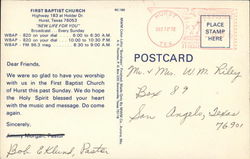 FIRST BAPTIST CHURCH
Highway 183 at Holder Dr.
Hurst, Texas 76053
"NEW LIFE FOR YOU"
Broadcast . . . Every Sunday
WBAP - 820 on your dial - 6:00 to 6:30 P.M.
WBAP - 820 on your dial - 10:00 to 10:30 P.M.
WBAP - FM 96.3 meg - 8:30 to 9:00 A.M.
HURST
TEX
PLACE
STAMP
HERE
POSTCARD
Dear Friends,
We were so glad to have you worship
with us in the First Baptist Church
of Hurst this past Sunday. We do hope
the Holy Spirit blessed your heart
with the music and message. Do come
again.
Sincerely,
Jimmy Morgan, Pastor
Bob Eklund, Pastor
Mr. & Mrs. W M Riley
Box 89
San Angelo, Texas
76901